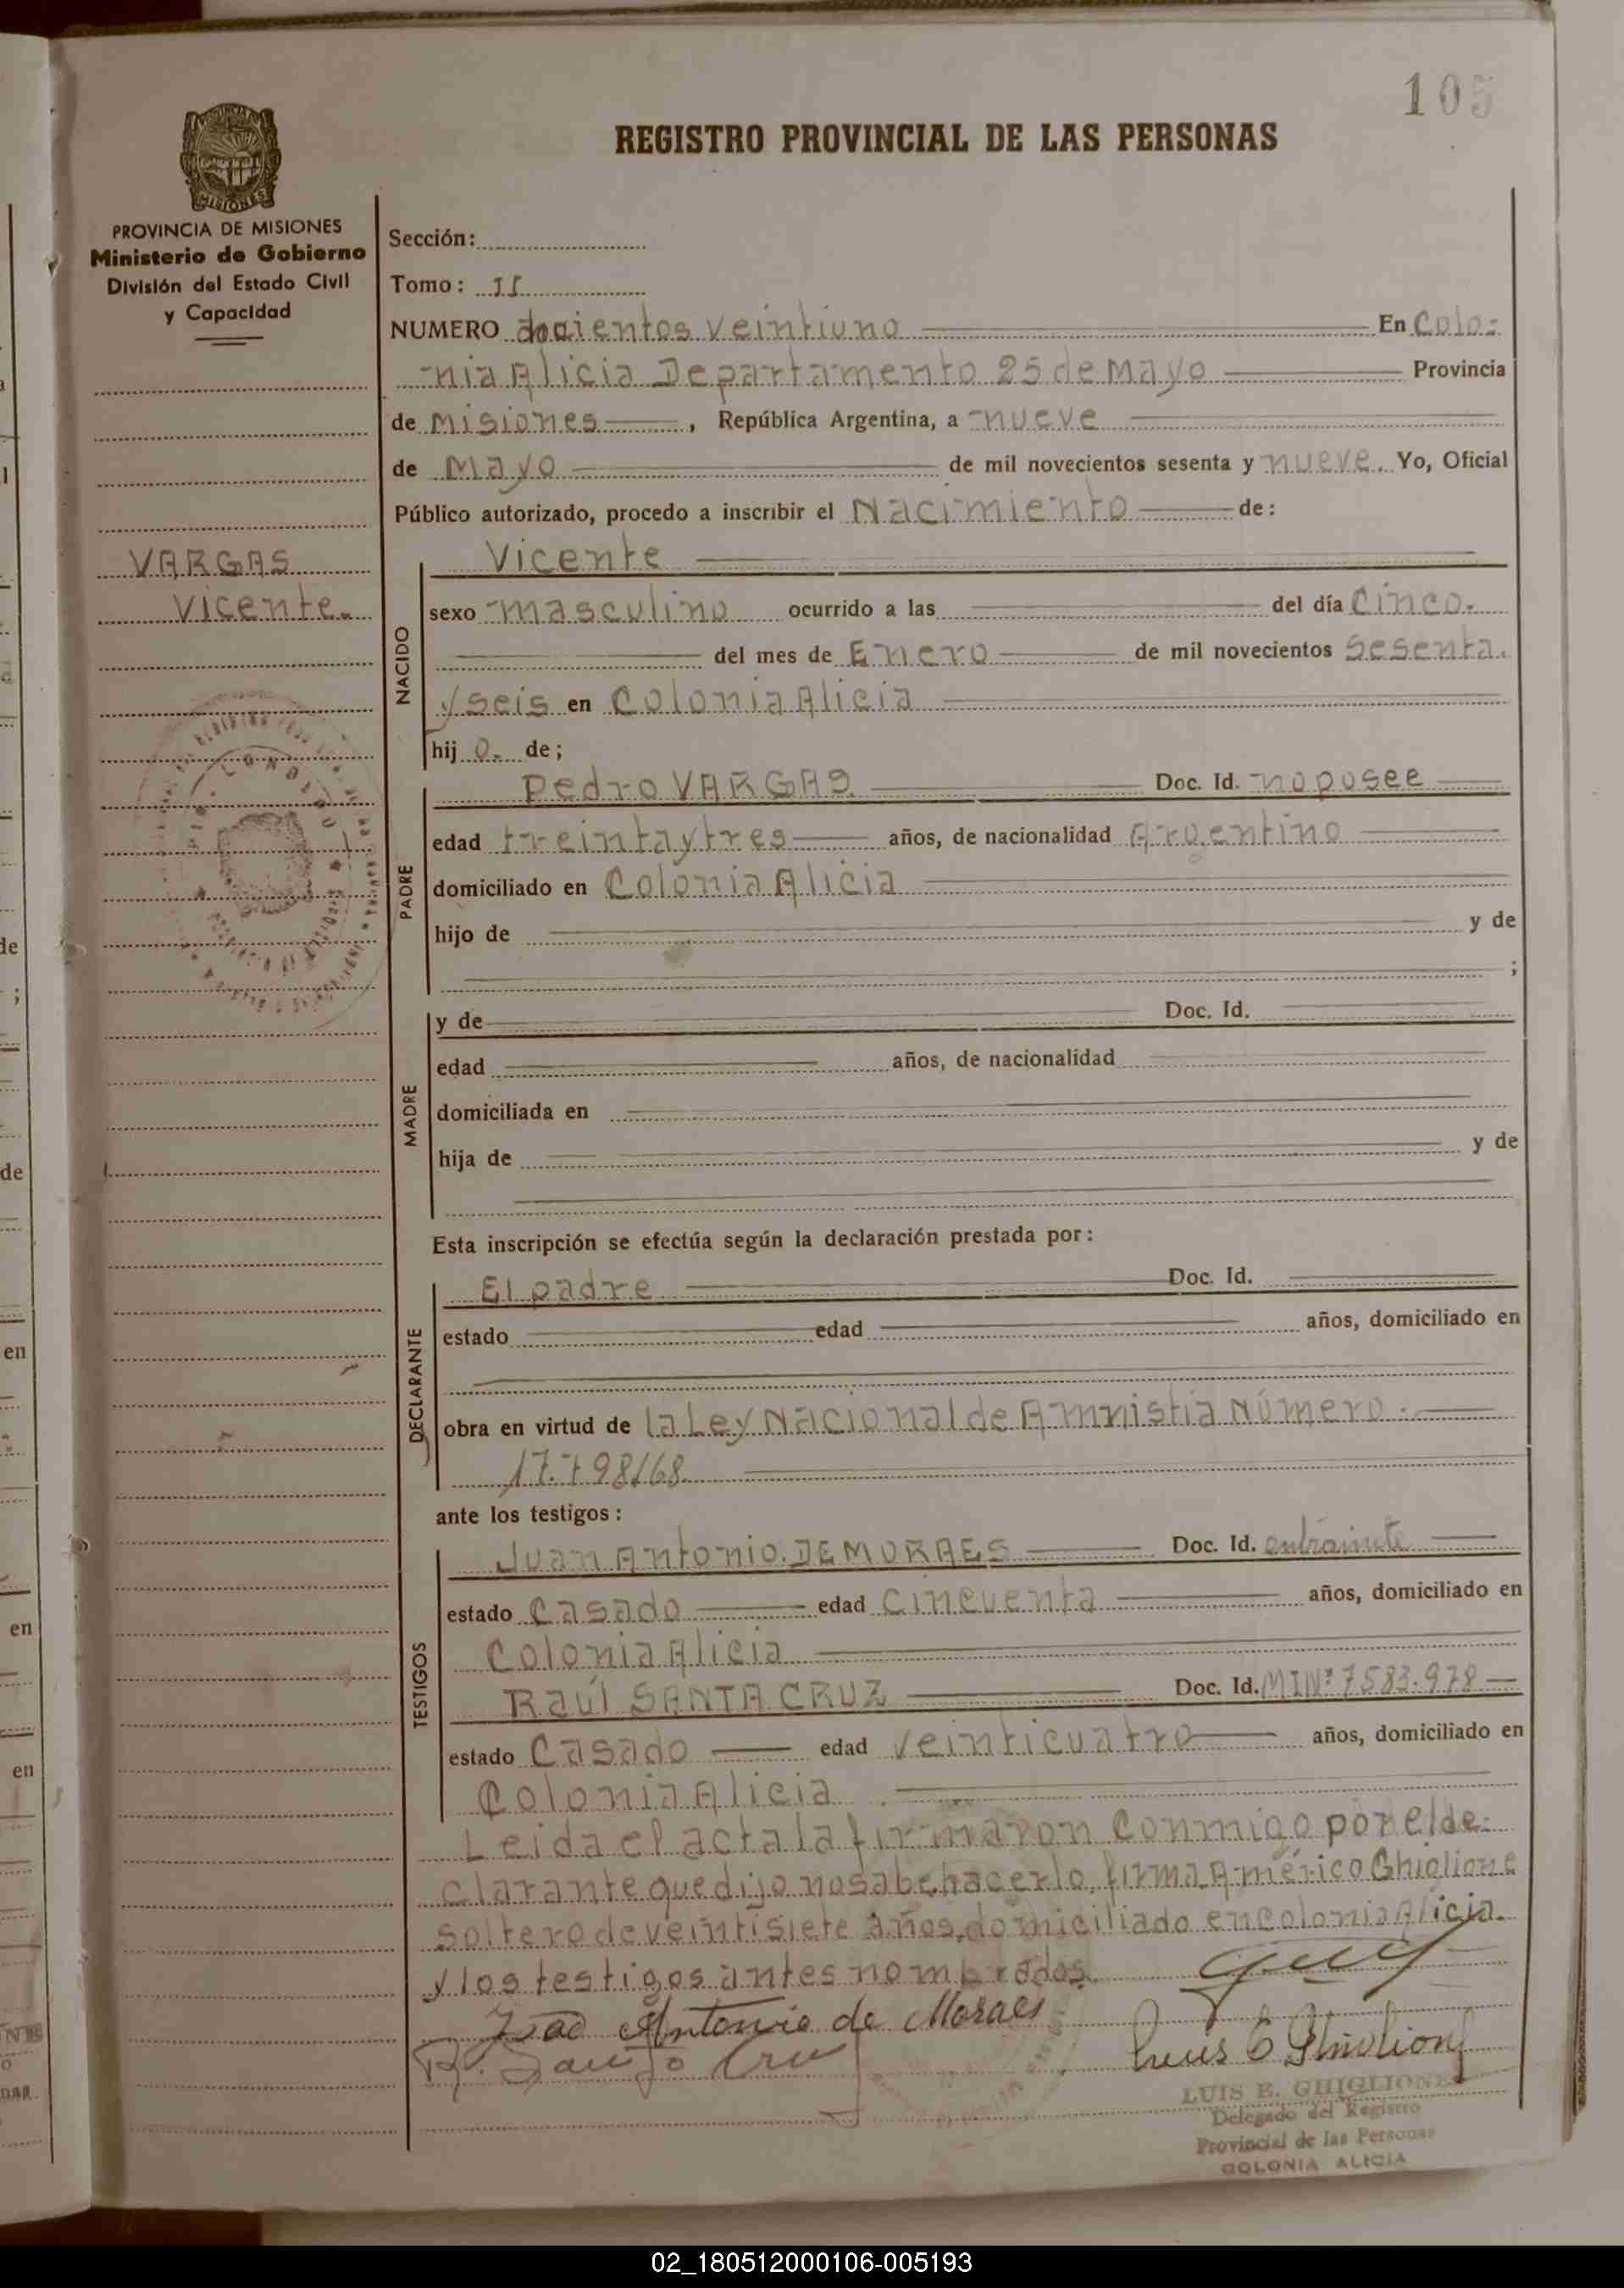 105
REGISTRO PROVINCIAL DE LAS PERSONAS
PROVINCIA DE MISIONES
Ministerio de Gobierno
División del Estado Civil
y Capacidad
VARGAS
Vicente.
Sección:
Tomo: II
NUMERO docientos veintiuno En Colo-
nia Alicia Departamento 25 de Mayo Provincia
de Misiones, República Argentina, a nueve
de Mayo de mil novecientos sesenta y nueve. Yo, Oficial
Público autorizado, procedo a inscribir el Nacimiento de:
NACIDO
Vicente
sexo masculino ocurrido a las del día Cinco.
del mes de Enero de mil novecientos Sesenta
y seis en Colonia Alicia
hijo. de;
PADRE
Pedro VARGAS Doc. Id. no posee
edad treinta y tres años, de nacionalidad Argentino
domiciliado en Colonia Alicia
hijo de y de
;
MADRE
y de Doc. Id.
edad años, de nacionalidad
domiciliada en
hija de y de
Esta inscripción se efectúa según la declaración prestada por:
DECLARANTE
El padre Doc. Id.
estado edad años, domiciliado en
obra en virtud de la Ley Nacional de Amnistia Número
17.798/68
ante los testigos:
TESTIGOS
Juan Antonio DE MORAES Doc. Id. en trámite
estado Casado edad Cincuenta años, domiciliado en
Colonia Alicia
Raúl SANTA CRUZ Doc. Id. MIN° 7583.978
estado Casado edad veinticuatro años, domiciliado en
Colonia Alicia
Leida el acta la firmaron conmigo por el de-
clarante que dijo no sabe hacerlo, firma Américo Ghiglione
soltero de veintisiete años, domiciliado en colonia Alicia.
y los testigos antes nombrados.
Joao Antonio de Moraes
R. Santa Cruz
Luis E Ghiglione
LUIS E. GHIGLIONE
Delegado del Registro
Provincial de las Personas
COLONIA ALICIA
02_180512000106-005193